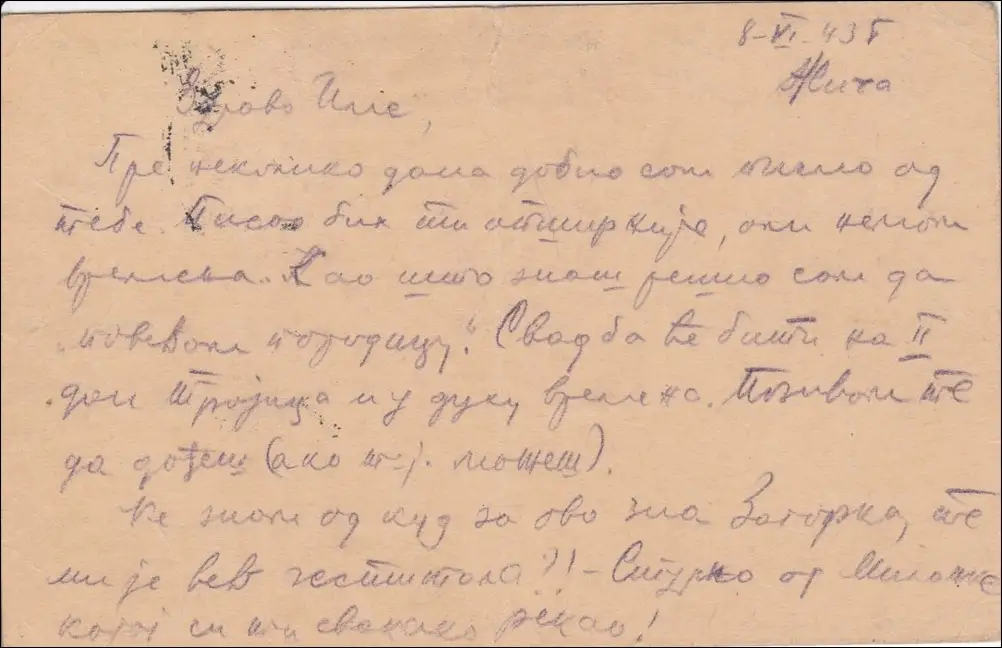 8-VI-43 г
Жича
Здраво Иле,
Пре неколико дана добио сам писмо од
тебе. Писао бих ти опширније, али немам
времена. Као што знаш решио сам да
„повећам породицу“. Свадба ће бити на II
дан Тројица и у духу времена. Позивам те
да дођеш (ако т.ј. можеш).
Не знам од куд за ово зна Загорка, те
ми је већ честитала?! - Сигурно од
си ти свакако рекао!